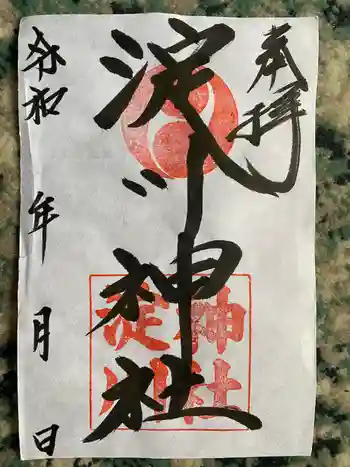 奉拝
淀川神社
令和 年 月 日
淀川
神社